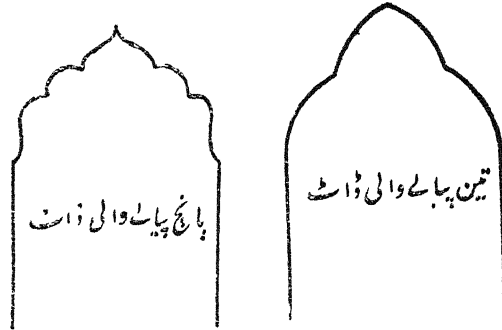 تین پیالے والی ڈاٹ
پانچ پیالے والی ڈاٹ